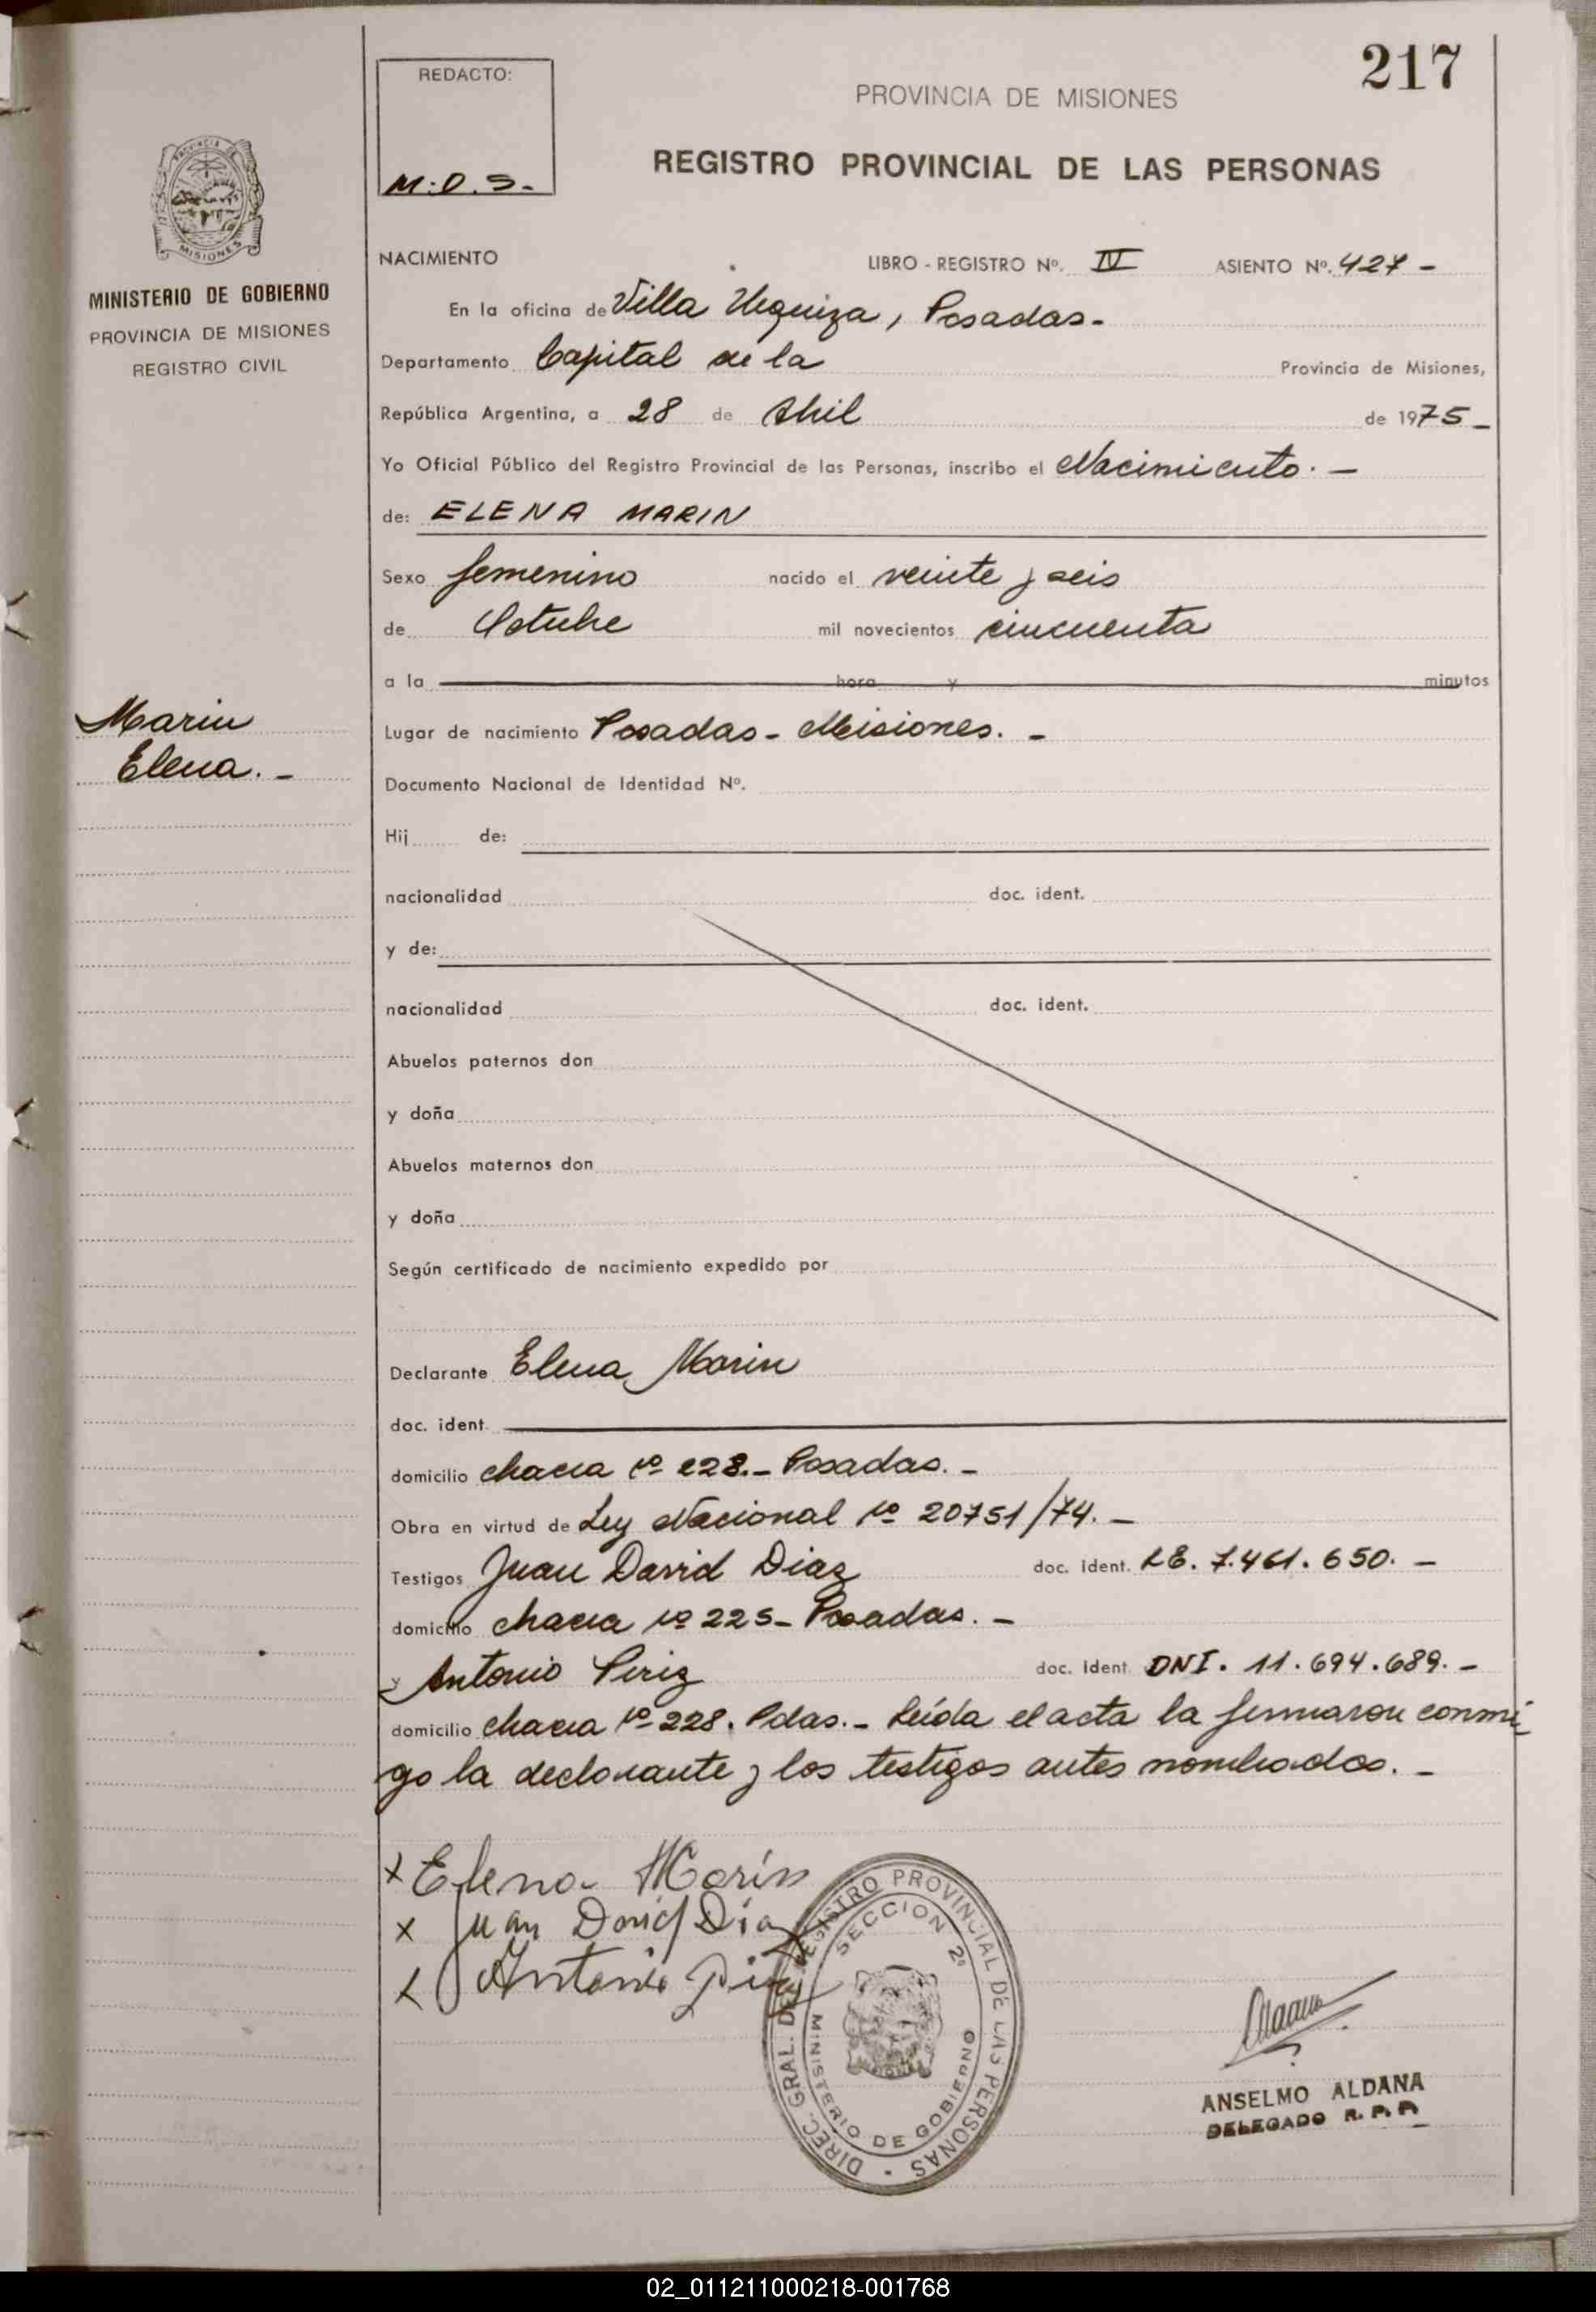 217
REDACTO:
M.O.S.-
PROVINCIA DE MISIONES
REGISTRO PROVINCIAL DE LAS PERSONAS
PROVINCIA DE
MISIONES
MINISTERIO DE GOBIERNO
PROVINCIA DE MISIONES
REGISTRO CIVIL
NACIMIENTO LIBRO - REGISTRO Nº. IV ASIENTO Nº. 427 -
En la oficina de Villa Urquiza, Posadas.-
Departamento Capital de la Provincia de Misiones,
República Argentina, a 28 de Abril de 1975 -
Yo Oficial Público del Registro Provincial de las Personas, inscribo el Nacimiento. -
de: ELENA MARIN
Sexo femenino nacido el veinte y seis
de Octubre mil novecientos cincuenta
a la hora y minutos
Marin
Elena. -
Lugar de nacimiento Posadas - Misiones. -
Documento Nacional de Identidad Nº.
Hij de:
nacionalidad doc. ident.
y de:
nacionalidad doc. ident.
Abuelos paternos don
y doña
Abuelos maternos don
y doña
Según certificado de nacimiento expedido por
Declarante Elena Marin
doc. ident.
domicilio chacra nº 228.- Posadas. -
Obra en virtud de Ley Nacional nº 20751/74. -
Testigos Juan David Diaz doc. ident. LE. 7.461.650. -
domicilio chacra nº 225 - Posadas. -
y Antonio Piriz doc. Ident DNI. 11.694.689. -
domicilio chacra nº 228. Pdas. - Leída el acta la firmaron conmi
go la declarante y los testigos antes nombrados. -
x Elena Marín
x Juan David Díaz
x Antonio Piriz
DIREC. GRAL. DEL REGISTRO PROVINCIAL DE LAS PERSONAS -
SECCION 2ª
MINISTERIO DE GOBIERNO
ANSELMO ALDANA
DELEGADO R. P. P.
02_011211000218-001768